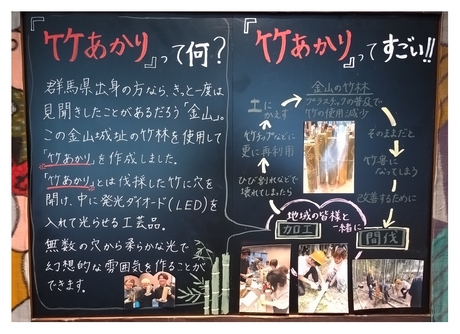 『竹あかり』って何？
群馬県出身の方なら、きっと一度は
見聞きしたことがあるだろう「金山」。
この金山城址の竹林を使用して
「竹あかり」を作成しました。
「竹あかり」とは伐採した竹に穴を
開け、中に発光ダイオード(LED)を
入れて光らせる工芸品。
無数の穴から柔らかな光で
幻想的な雰囲気を作ることが
できます。
『竹あかり』ってすごい!!
金山の竹林
プラスチックの普及で
竹の使用減少
そのままだと
竹害に
なってしまう
改善するために
間伐
地域の皆様と
一緒に
加工
ひび割れなどで
壊れてしまったら
竹チップなどに
更に再利用
土に
かえす